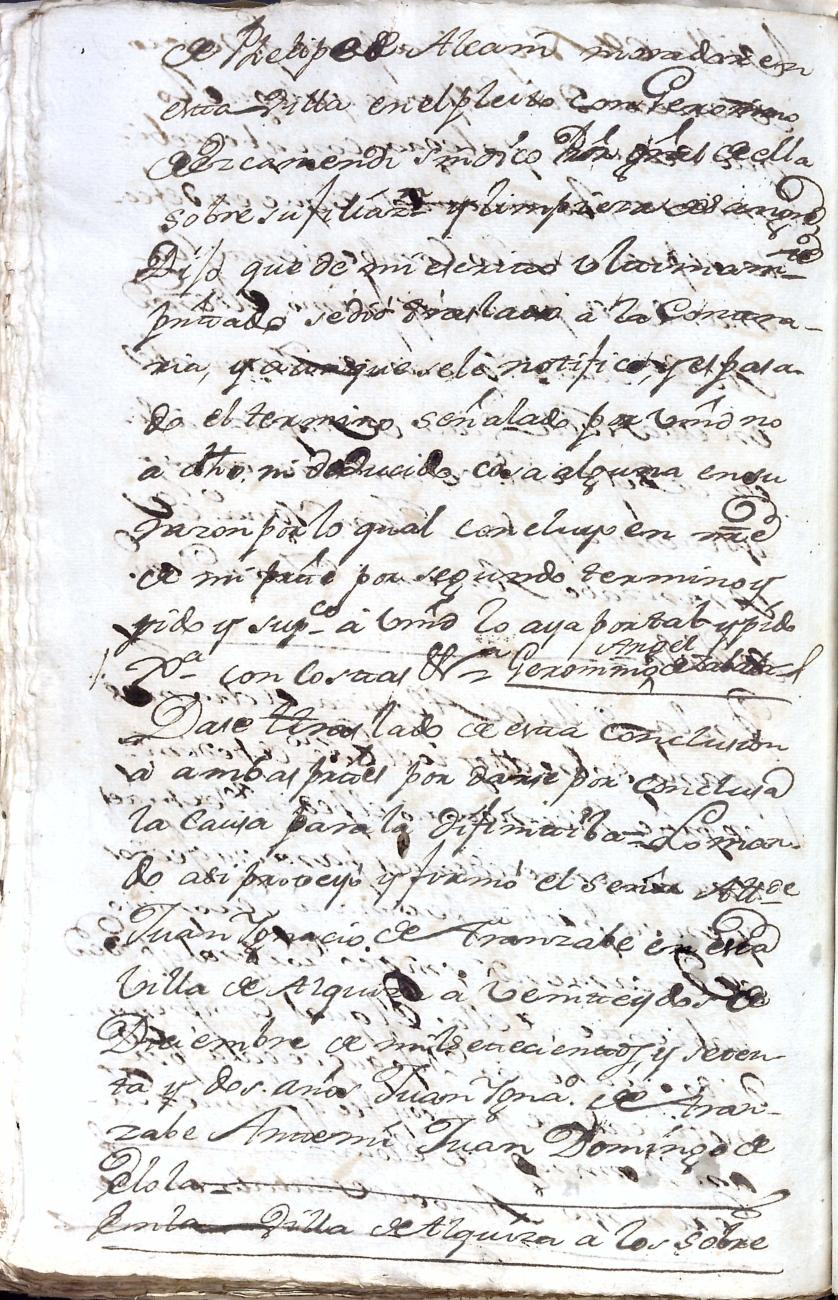 de Phelipe de Aleam morador en
esta Villa en el pleito con Geronimo
de Izcamendi sindico Prõr grãl de ella
sobre su filiazn y limpieza de sangre
Digo que de mi escrito vltimam-te
pntado se dió traslado á la Contra-
ria, y aunque se le notificó, y es pasa-
do el termino señalado por Vmd no
á dho, ni deducido cosa alguna en su
razon por lo qual concluyo en nre
de mi parte por segundo termino y
pido y supco á Vmd lo aya por tal y pido
Xa con costas &a Geronimo Angel de
Dase traslado de esta conclusion
á ambas partes por darse por conclusa
la causa para la difinitiba = Lo man-
do asi proveyó y firmó el señor Altde
Juan Ygnacio de Aranzabe en esta
Villa de Alquiza á veinte y dos de
Diciembre de mil setecientos, y seten-
ta y dos años Juan Ygno de Aran-
zabe Antemi Juan Domingo de
Elola
En la Villa de Alquiza a los sobre